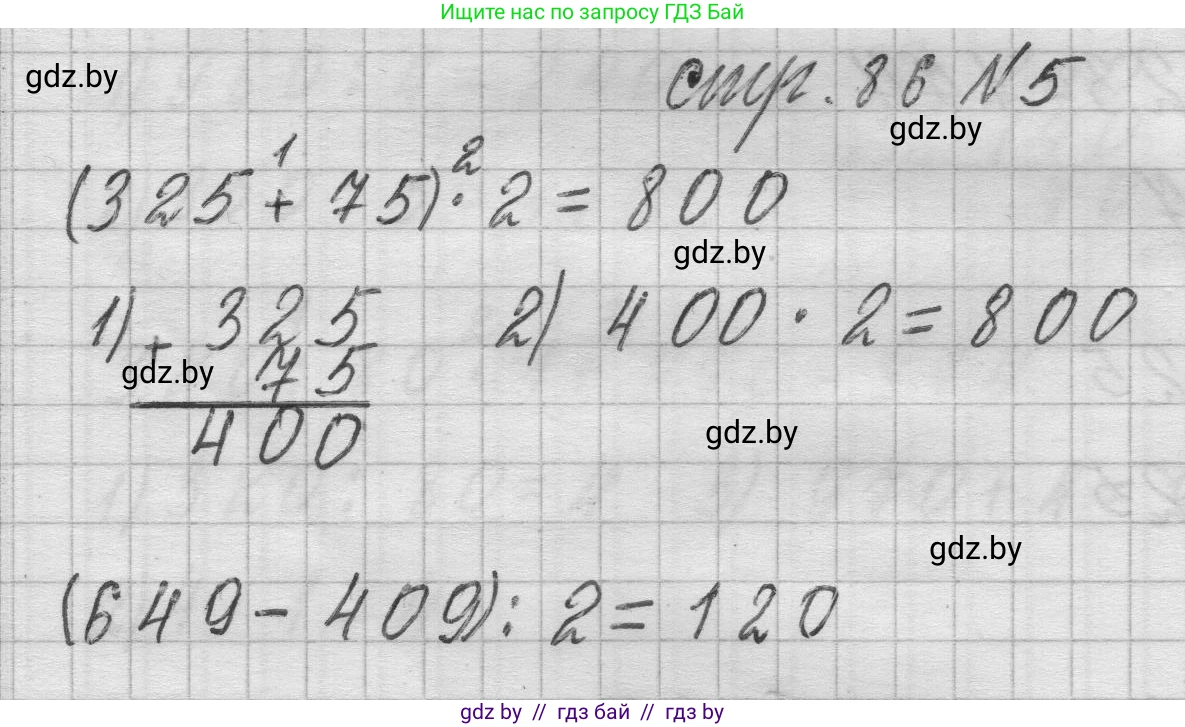 Ищите нас по запросу ГДЗ Бай
gdz.by
стр. 86 №5
gdz.by
1 2
(325 + 75) · 2 = 800
gdz.by
1) + 325 2) 400 · 2 = 800
gdz.by 75
400
gdz.by
gdz.by
(649 - 409) : 2 = 120
gdz by // гдз бай // гдз by